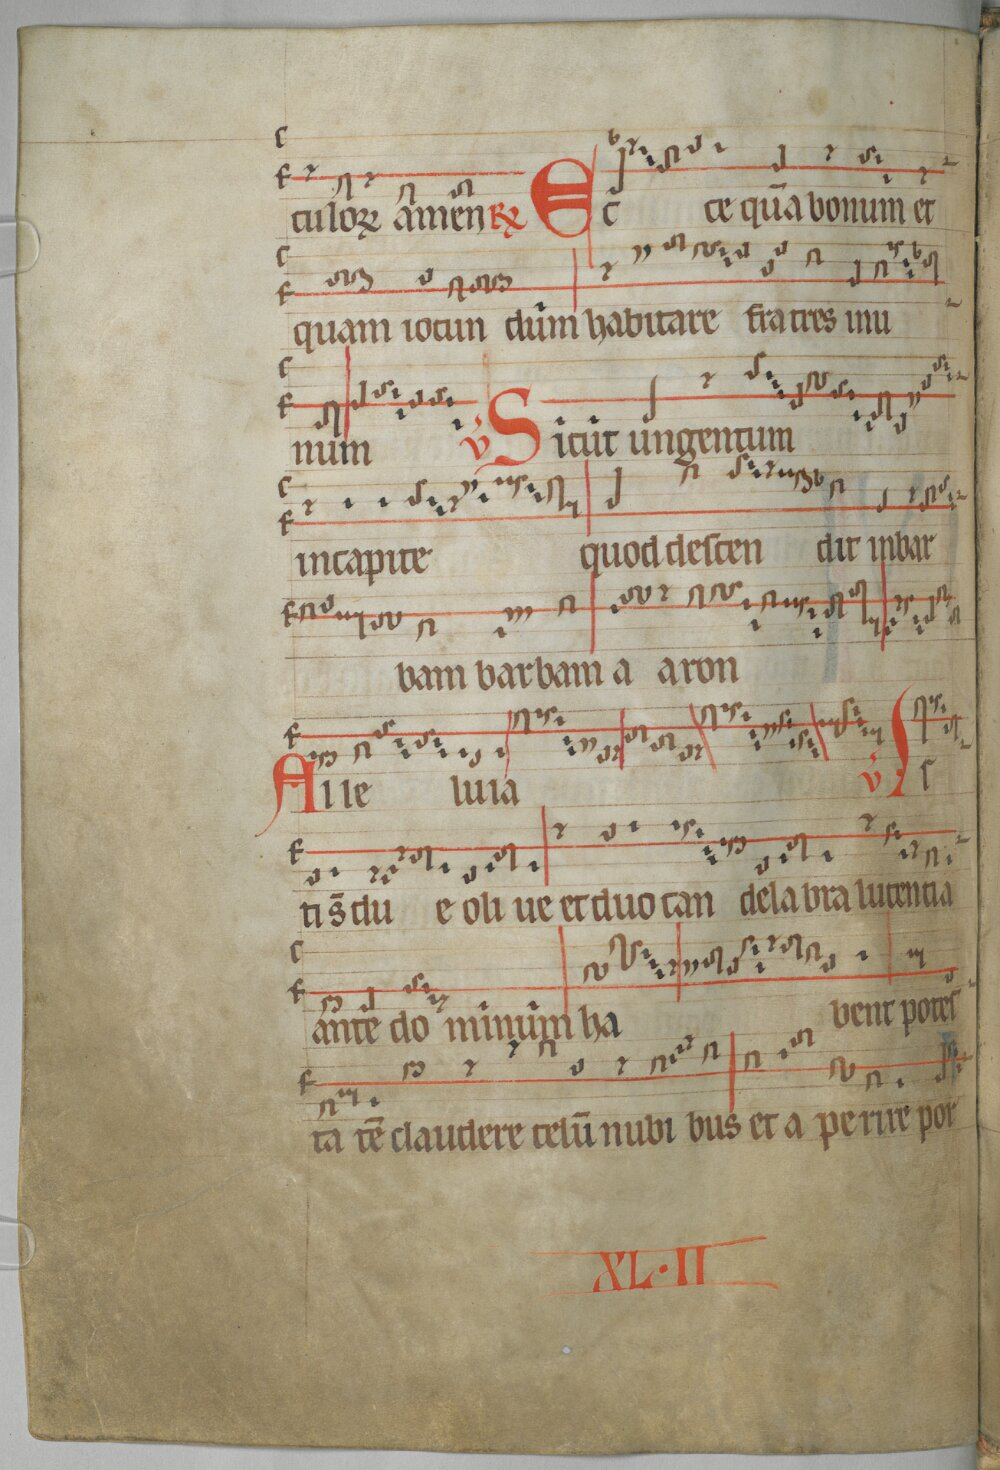 culoꝝ amen ꝶ Ec ce quā bonum et
quam iocun dum habitare fratres inu
num ℣ Sicut ungentum
incapite quod descen dit inbar
bam barbam a aron
Alle luia ℣ Is
ti s̄ du e oli ue et duo can dela bra lucentia
ante do minum ha bent potes
ta tē claudere celū nubi bus et a perire por
XL·II